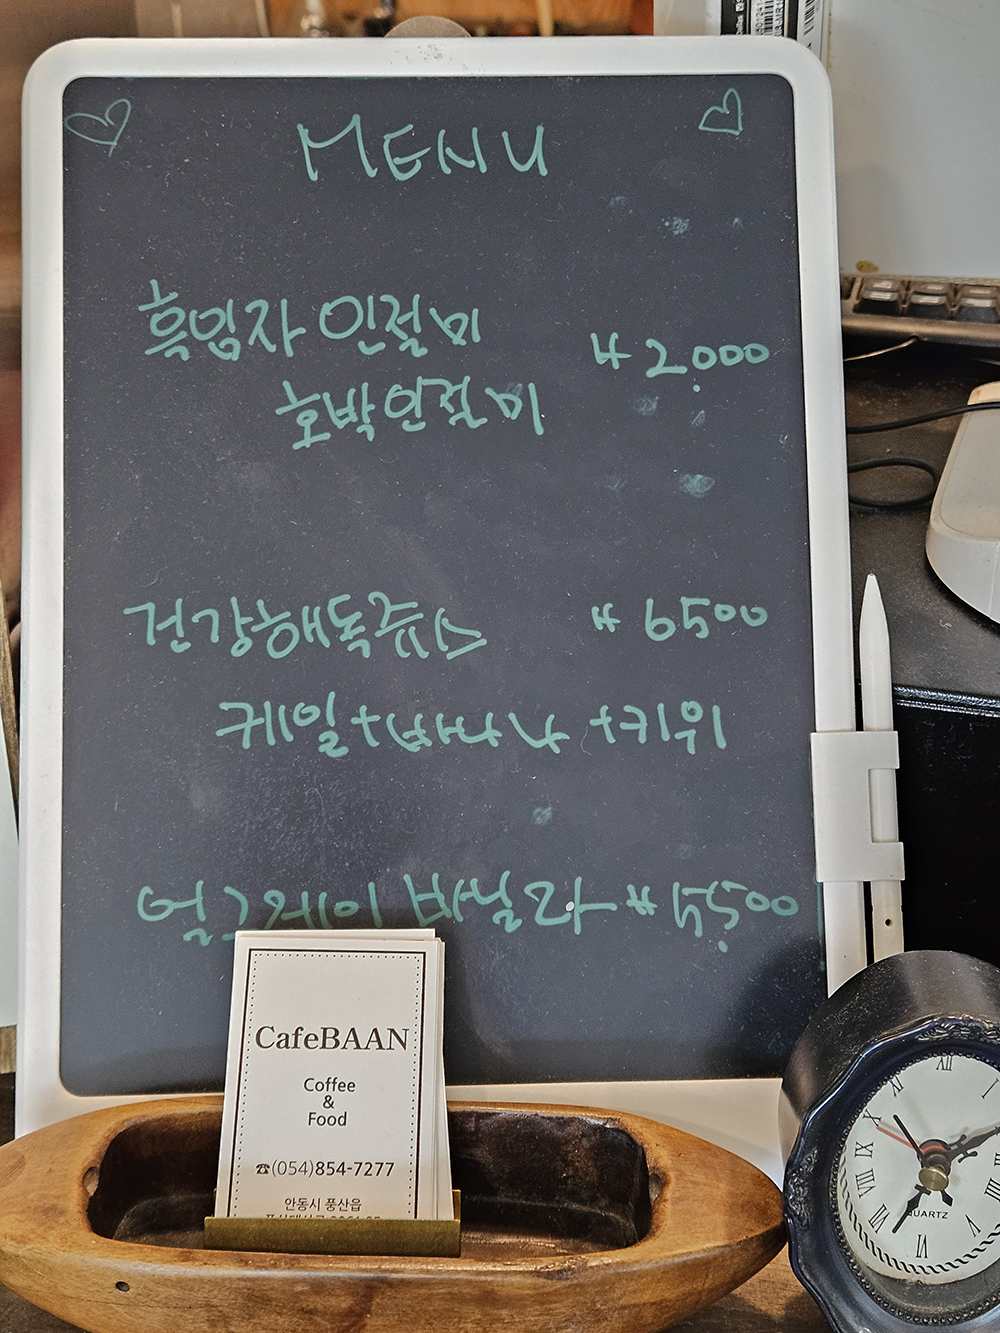 MENU
흑임자 인절미
₩ 2.000
호박인절미
건강해독쥬스 ₩ 6500
케일+바나나 +키위
얼그레이 바닐라 ₩ 5,500
CafeBAAN
Coffee
&
Food
☎(054)854-7277
안동시 풍산읍
XII
I
XI
X
IX
VIII
VII
VI
QUARTZ